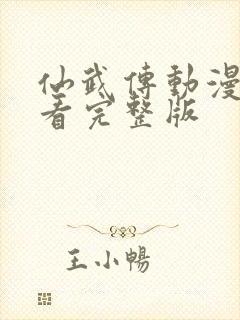 仙武傳動漫
看完整版
王小暢